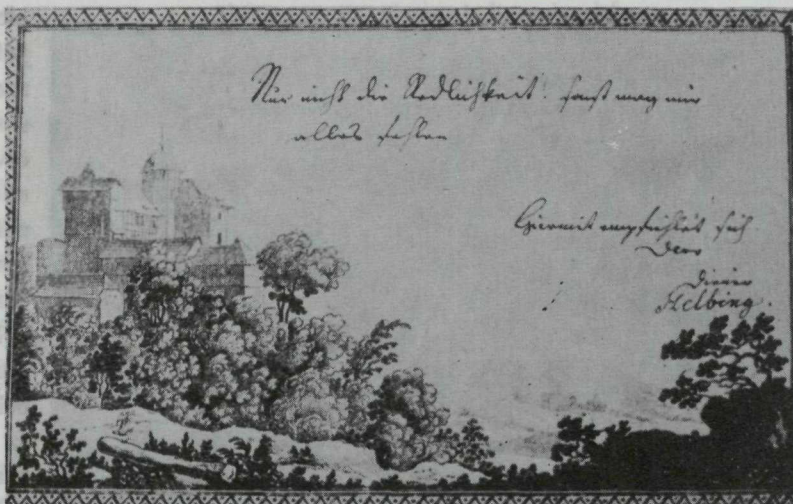 Nur nicht die Redlichkeit! sonst mag mir
alles fehlen
Hiermit empfiehlet sich
Dero
Diener
Helbing.